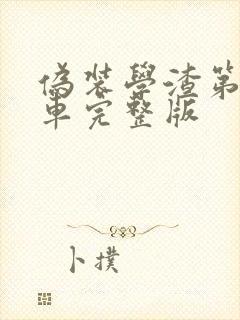 偽裝學渣第
車完整版
卜撲